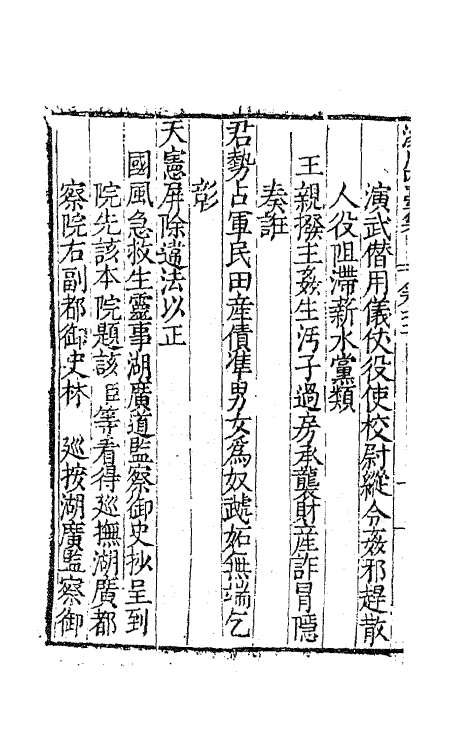 演武僭用儀仗役使校尉縱令姦邪趕散
人役阻滯薪水黨類
王親撥主姦生汚子過房承襲財産詐冒隱
奏誑
君勢占軍民田産債準男女爲奴虣妬無端乞
彰
天憲屏除違法以正
國風急救生靈事湖廣道監察御史抄呈到
院先該本院題該臣等看得廵撫湖廣都
察院右副都御史林　廵按湖廣監察御